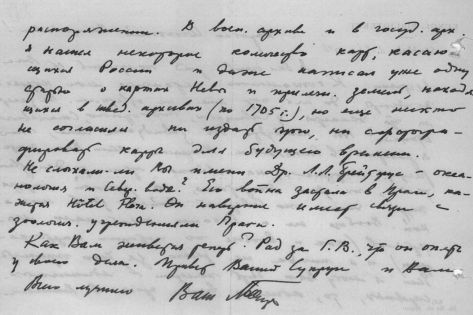 распоряжении. В воен. архиве и в госуд. арх.
я нашел некоторое количество карт, касаю
щихся России и даже написал уже одну
статью о картах Невы и прилеж. земель, находя
щихся в швед. архивах (по 1705 г.), но еще никто
не согласился ни издать это, ни сфотогра-
фировать карты для будущего времени.
Не слыхали ли Вы имени Др. Л.Л.
и Его война застала в Праге, ка-
жется Hôtel Flora. Он наверное имеет связи с
зоолог. учреждениями Праги.
Как Вам живется теперь? Рад за Г.В., что он опять
у своего дела. Привет Вашей Супруге и Вам.
Всего лучшего Ваш